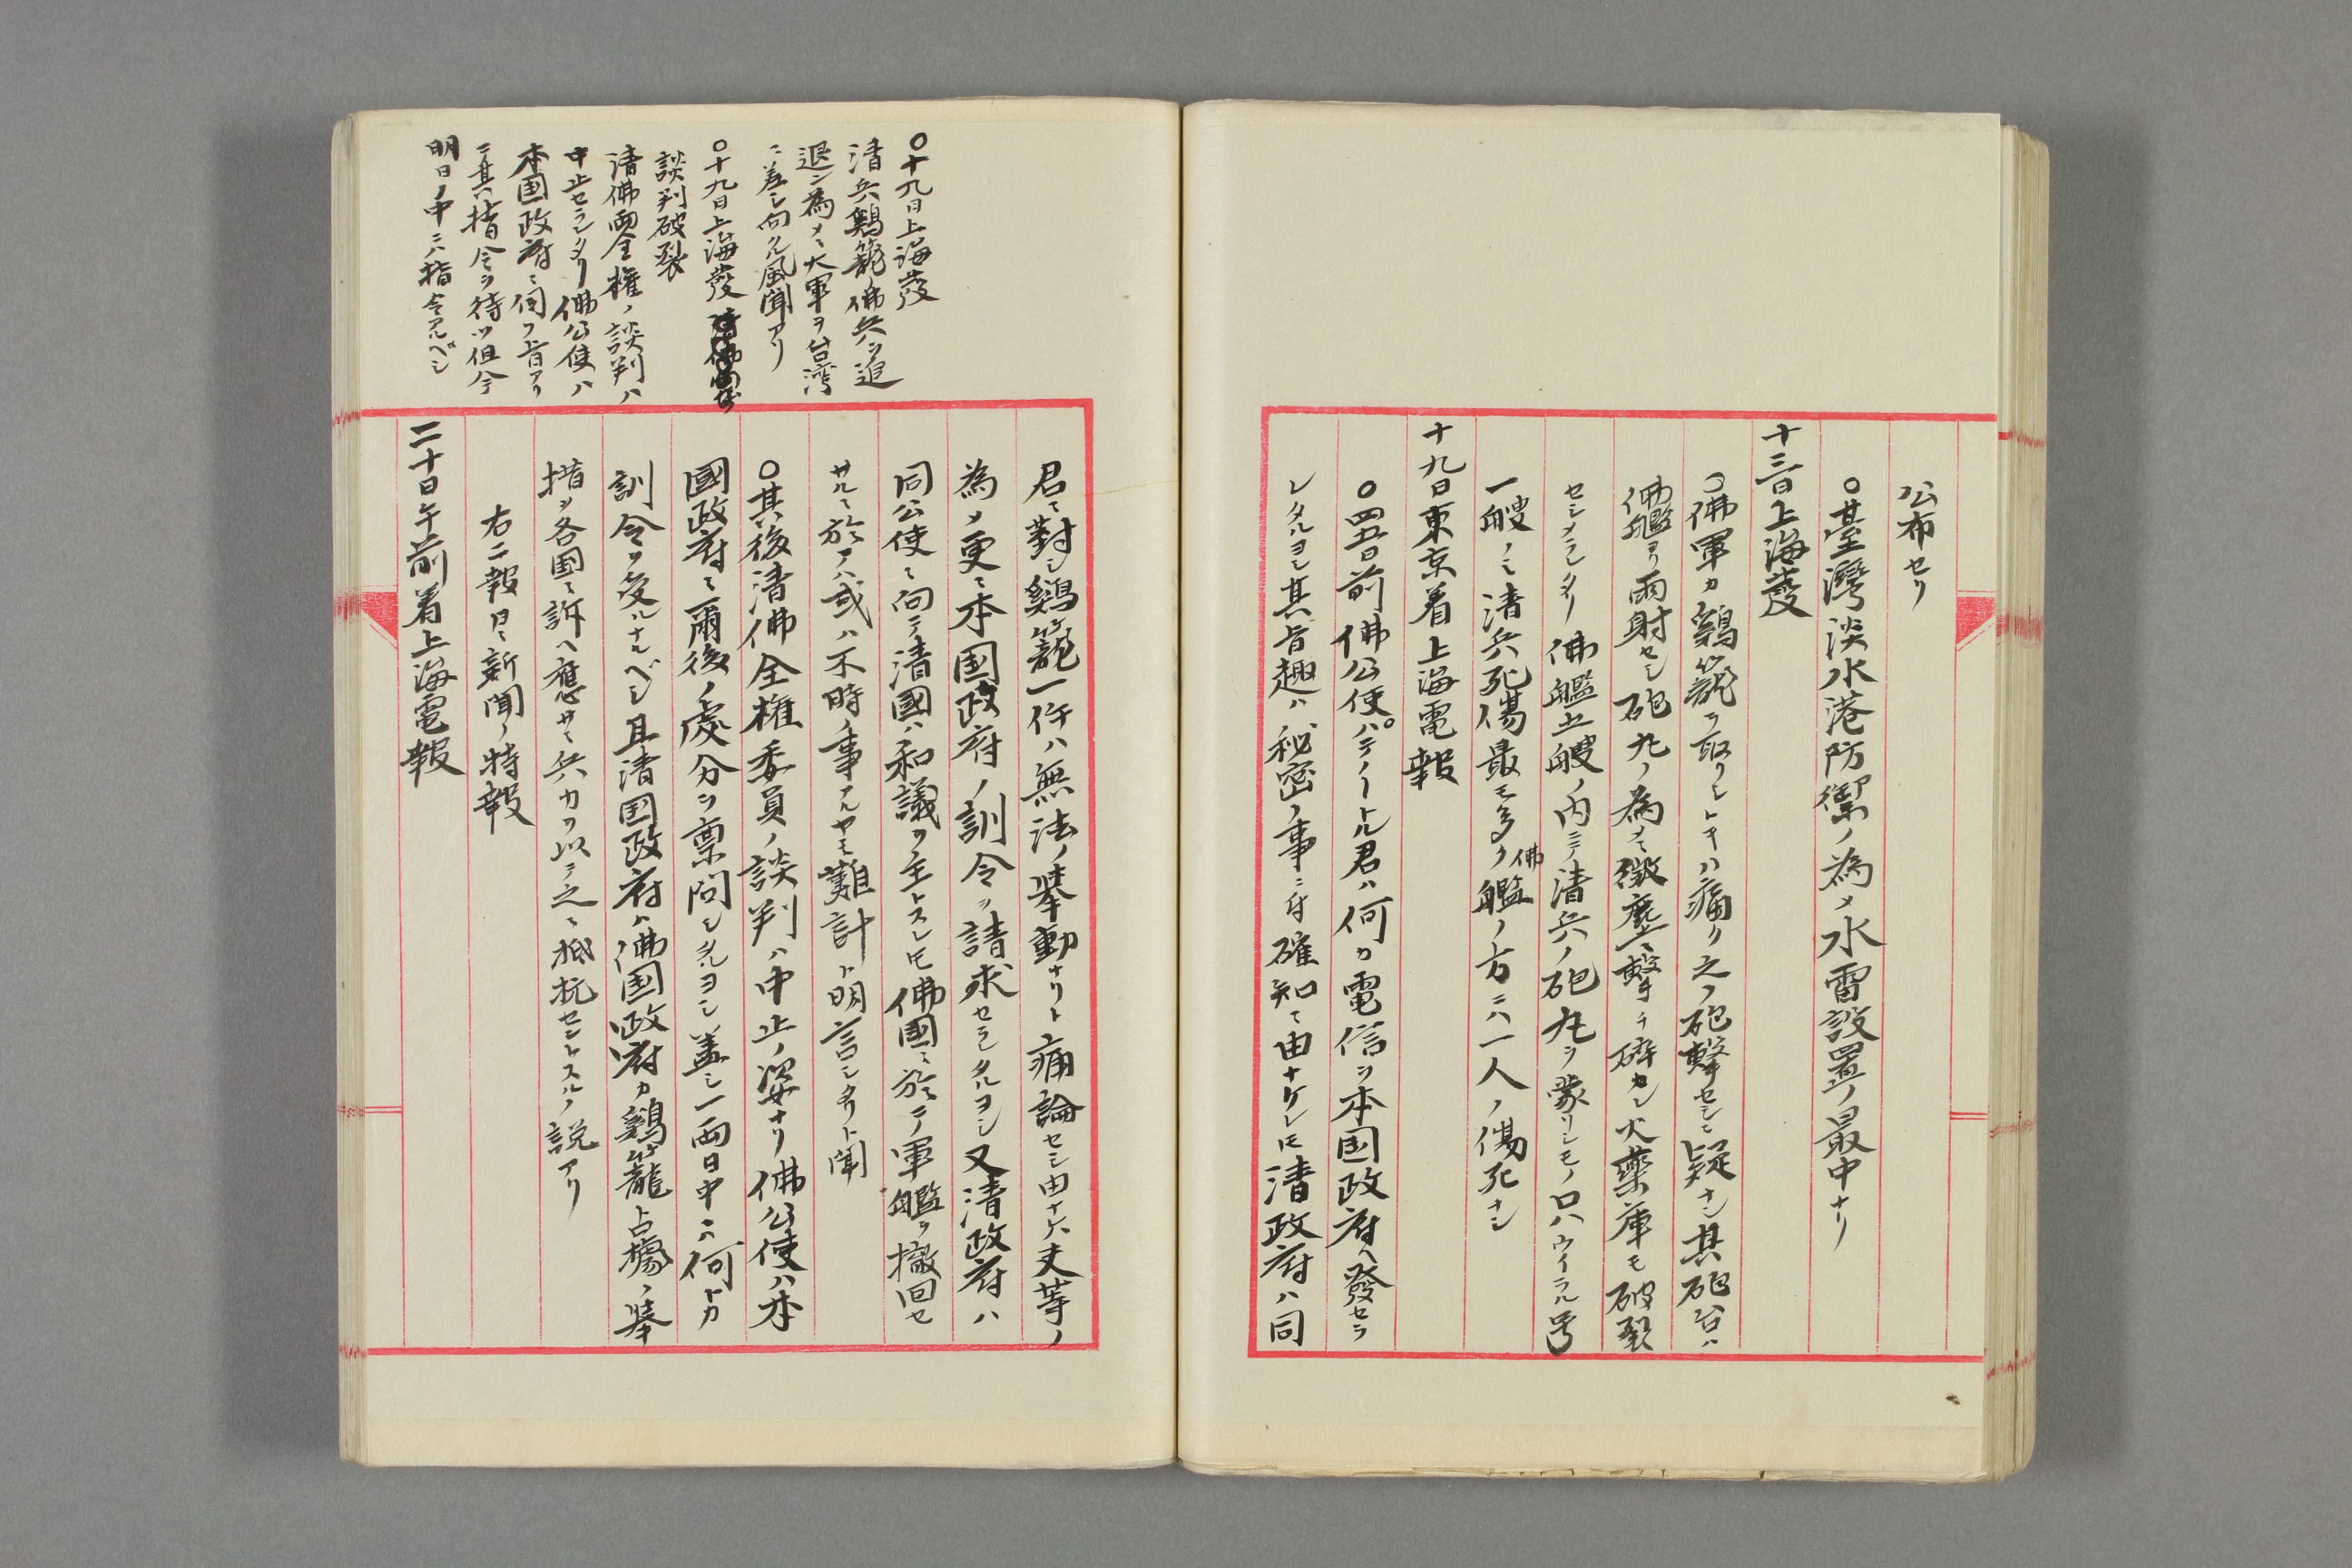 公布セリ
○基灣淡水港防禦ノ為メ水雷設置ノ最中ナリ
十三日上海發
○佛軍カ鷄籠ヲ取リシトキハ痛ク之ヲ砲擊セシニ疑ナシ其砲台ハ
佛艦ヨリ雨射セシ砲丸ノ為メニ微塵ニ擊チ碎カレ火藥庫モ破裂
セシメラレタリ佛艦五艘ノ内ニテ清兵ノ砲丸ヲ蒙リシモノ只ハウイラル号
一艘ノミ清兵死傷最モ多ク佛艦ノ方ニハ一人ノ傷死ナシ
十九日東京着上海電報
○四五日前佛公使パテノートル君ハ何カ電信ヲ本国政府ヘ發セラ
レタルヨシ其旨趣ハ秘密ノ事ニ付確知ニ由ナケレ𪜈清政府ハ同
○十八日上海發
清兵鷄籠ノ佛兵ヲ追
退ン為メニ大軍ヲ台湾
ニ差シ向タル風聞アリ
○十九日上海發
談判破裂
清佛両全権ノ談判ハ
中止セラレタリ佛公使ハ
本国政府ニ伺フ旨アリ
テ其指令ヲ待ツ但今
明日ノ中ニハ指令アルベシ
君ニ對シ鷄籠一件ハ無法ノ挙動ナリト痛論セシ由ナルハ夫等ノ
為メ更ニ本国政府ノ訓令ヲ請求セラレタルヨシ又清政府ハ
同公使ニ向テ清國ハ和議ヲ主トスレ𪜈佛國ニ於テ軍艦ヲ撤回セ
サルニ於テハ或ハ不時ノ事アルヤモ難計ト明言シタリト聞
○其後清佛全権委員ノ談判ハ中止ノ姿ナリ佛公使ハ本
國政府ニ爾後ノ處分ヲ稟問シタルヨシ蓋シ一両日中ニハ何トカ
訓令ヲ受ルナルベシ且清国政府ハ佛国政府カ鷄籠占據ノ挙
措ヲ各国ニ訴ヘ應セサレハ兵力ヲ以テ之ニ抵抗セントスルノ説アリ
右二報日々新聞ノ特報
二十日午前着上海電報